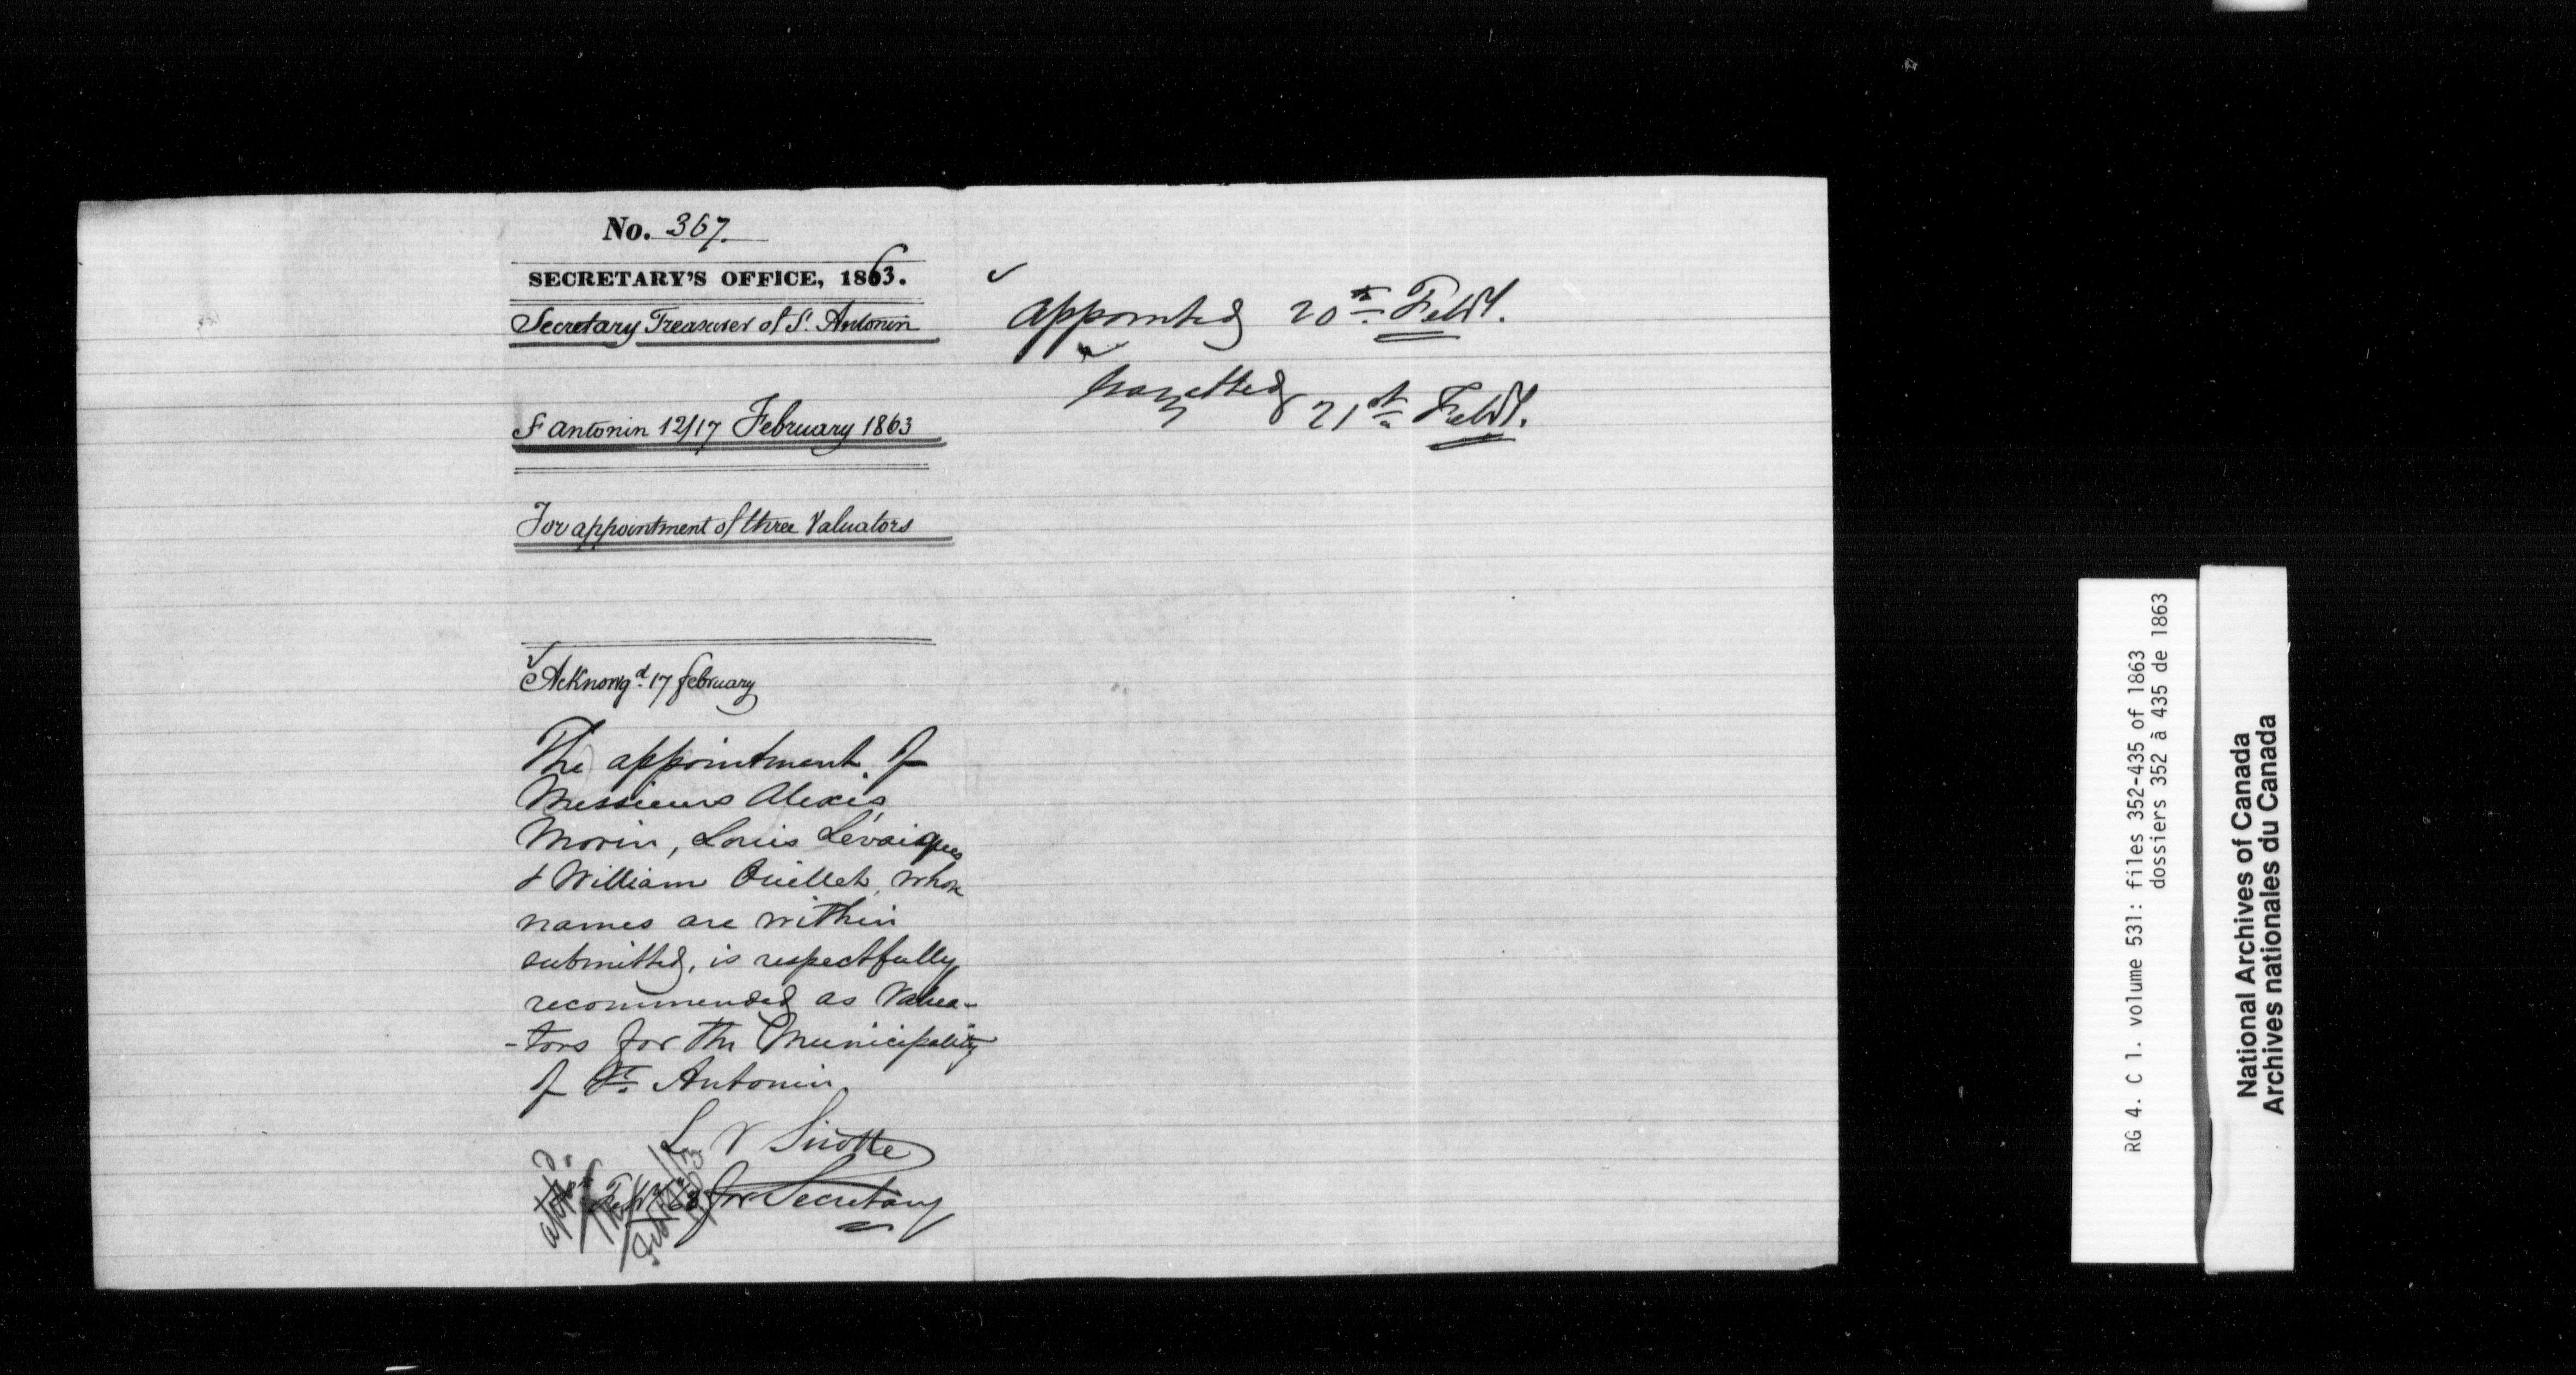 No. 367.
SECRETARY'S OFFICE, 1863.
Secretary Treasurer of St. Antonin
St antonin 12/17 February 1863
For appointment of three Valuators
Acknowgd. 17 february
The appointment of
Messieurs Alexis
Morin, Louis
& William Ouillet, whose
names are within
submitted, is respectfully
recommended as Valua-
-tors for the Municipality
of St. Antonin.
L V Sicotte
for Secretary
appointed 20th Feby.
Gazetted 21st Feby.
RG 4. C 1. volume 531: files 352-435 of 1863
dossiers 352 à 435 de 1863
National Archives of Canada
Archives nationales du Canada